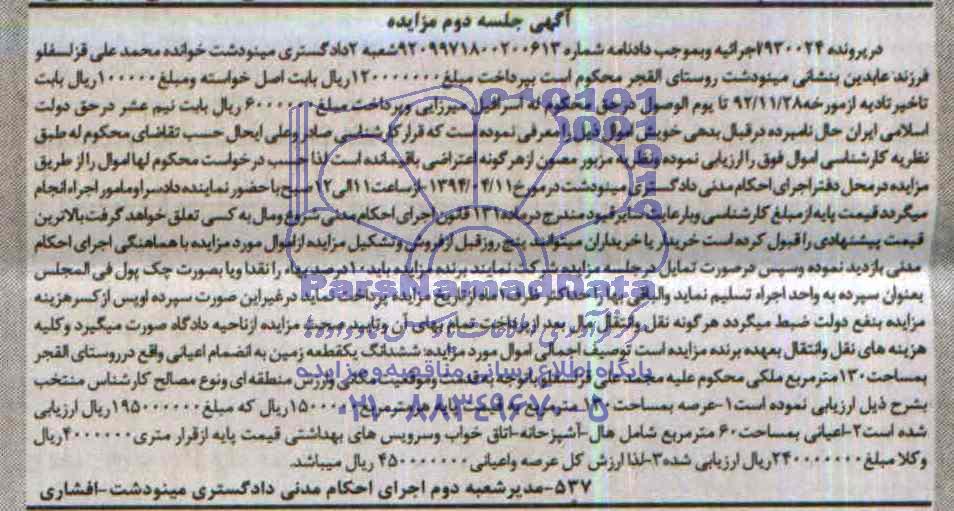 آگهی جلسه دوم مزایده
در پرونده ۷۹۳۰۰۲۴اجرائیه وبموجب دادنامه شماره ۹۲۰۹۹۷۱۸۰۰۲۰۰۶۱۳شعبه ۲دادگستری مینودشت خوانده محمد علی قزلسفلو
فرزند عابدین بنشانی مینودشت روستای القجر محکوم است بپرداخت مبلغ۱۲۰۰۰۰۰۰۰ریال بابت اصل خواسته ومبلغ۱۰۰۰۰۰ریال بابت
تاخیر تادیه ازمورخه۹۲/۱۱/۲۸ تا یوم الوصول درحق محکوم له اسرافیل میرزایی وپرداخت مبلغ۶۰۰۰۰۰۰ ریال بابت نیم عشر درحق دولت
اسلامی ایران حال نامبرده درقبال بدهی خویش اموال ذیل را معرفی نموده است که قرار کارشناسی صادر وعلی ایحال حسب تقاضای محکوم له طبق
نظریه کارشناسی اموال فوق را ارزیابی نموده ونظریه مزبور مصون ازهرگونه اعتراضی باقیمانده است لذا حسب درخواست محکوم لها اموال را از طریق
مزایده درمحل دفتر اجرای احکام مدنی دادگستری مینودشت در مورخ ۱۳۹۴/۰۴/۱۱ ازساعت۱۱الی۱۲صبح با حضور نماینده دادسرا ومامور اجراء انجام
میگردد قیمت پایه ازمبلغ کارشناسی وبارعایت سایر قیود مندرج درماده۱۳۱ قانون اجرای احکام مدنی شروع ومال به کسی تعلق خواهد گرفت بالاترین
قیمت پیشنهادی را قبول کرده است خریدار یا خریداران میتوانند پنج روز قبل ازفروش وتشکیل مزایده ازاموال مورد مزایده با هماهنگی اجرای احکام
مدنی بازدید نموده وسپس درصورت تمایل درجلسه مزایده شرکت نمایند برنده مزایده باید۱۰درصد بهاء را نقدا ویا بصورت چک پول فی المجلس
بعنوان سپرده به واحد اجراء تسلیم نماید والباقی بها را حداکثر ظرف۱ماه ازتاریخ مزایده پرداخت نماید درغیراین صورت سپرده اوپس ازکسرهزینه
مزایده بنفع دولت ضبط میگردد هرگونه نقل وانتقال مال بعد ازپرداخت تمام بهای آن وتایید صحت مزایده ازناحیه دادگاه صورت میگیرد وکلیه
هزینه های نقل وانتقال بعهده برنده مزایده است توصیف اجمالی اموال مورد مزایده: ششدانگ یکقطعه زمین به انضمام اعیانی واقع درروستای القجر
بمساحت۱۳۰مترمربع ملکی محکوم علیه محمد علی قزلسفلو باتوجه به قدمت وموقعیت مکانی وارزش منطقه ای ونوع مصالح کارشناس منتخب
بشرح ذیل ارزیابی نموده است۱-عرصه بمساحت۱۳۰ مترمربع به قیمت پایه هرمترمربع۱۵۰۰۰۰۰ریال که مبلغ۱۹۵۰۰۰۰۰۰ریال ارزیابی
شده است۲-اعیانی بمساحت۶۰ مترمربع شامل هال-آشپزخانه-اتاق خواب وسرویس های بهداشتی قیمت پایه ازقرار متری۴۰۰۰۰۰۰ریال
وکلا مبلغ۲۴۰۰۰۰۰۰۰ریال ارزیابی شده۳-لذا ارزش کل عرصه واعیانی۴۵۰۰۰۰۰۰۰ ریال میباشد.
۵۳۷-مدیر شعبه دوم اجرای احکام مدنی دادگستری مینودشت-افشاری
ParsNamadData
پایگاه اطلاع رسانی مناقصه و مزایده
۰۲۱-۸۸۳۴۹۶۷۰-۵